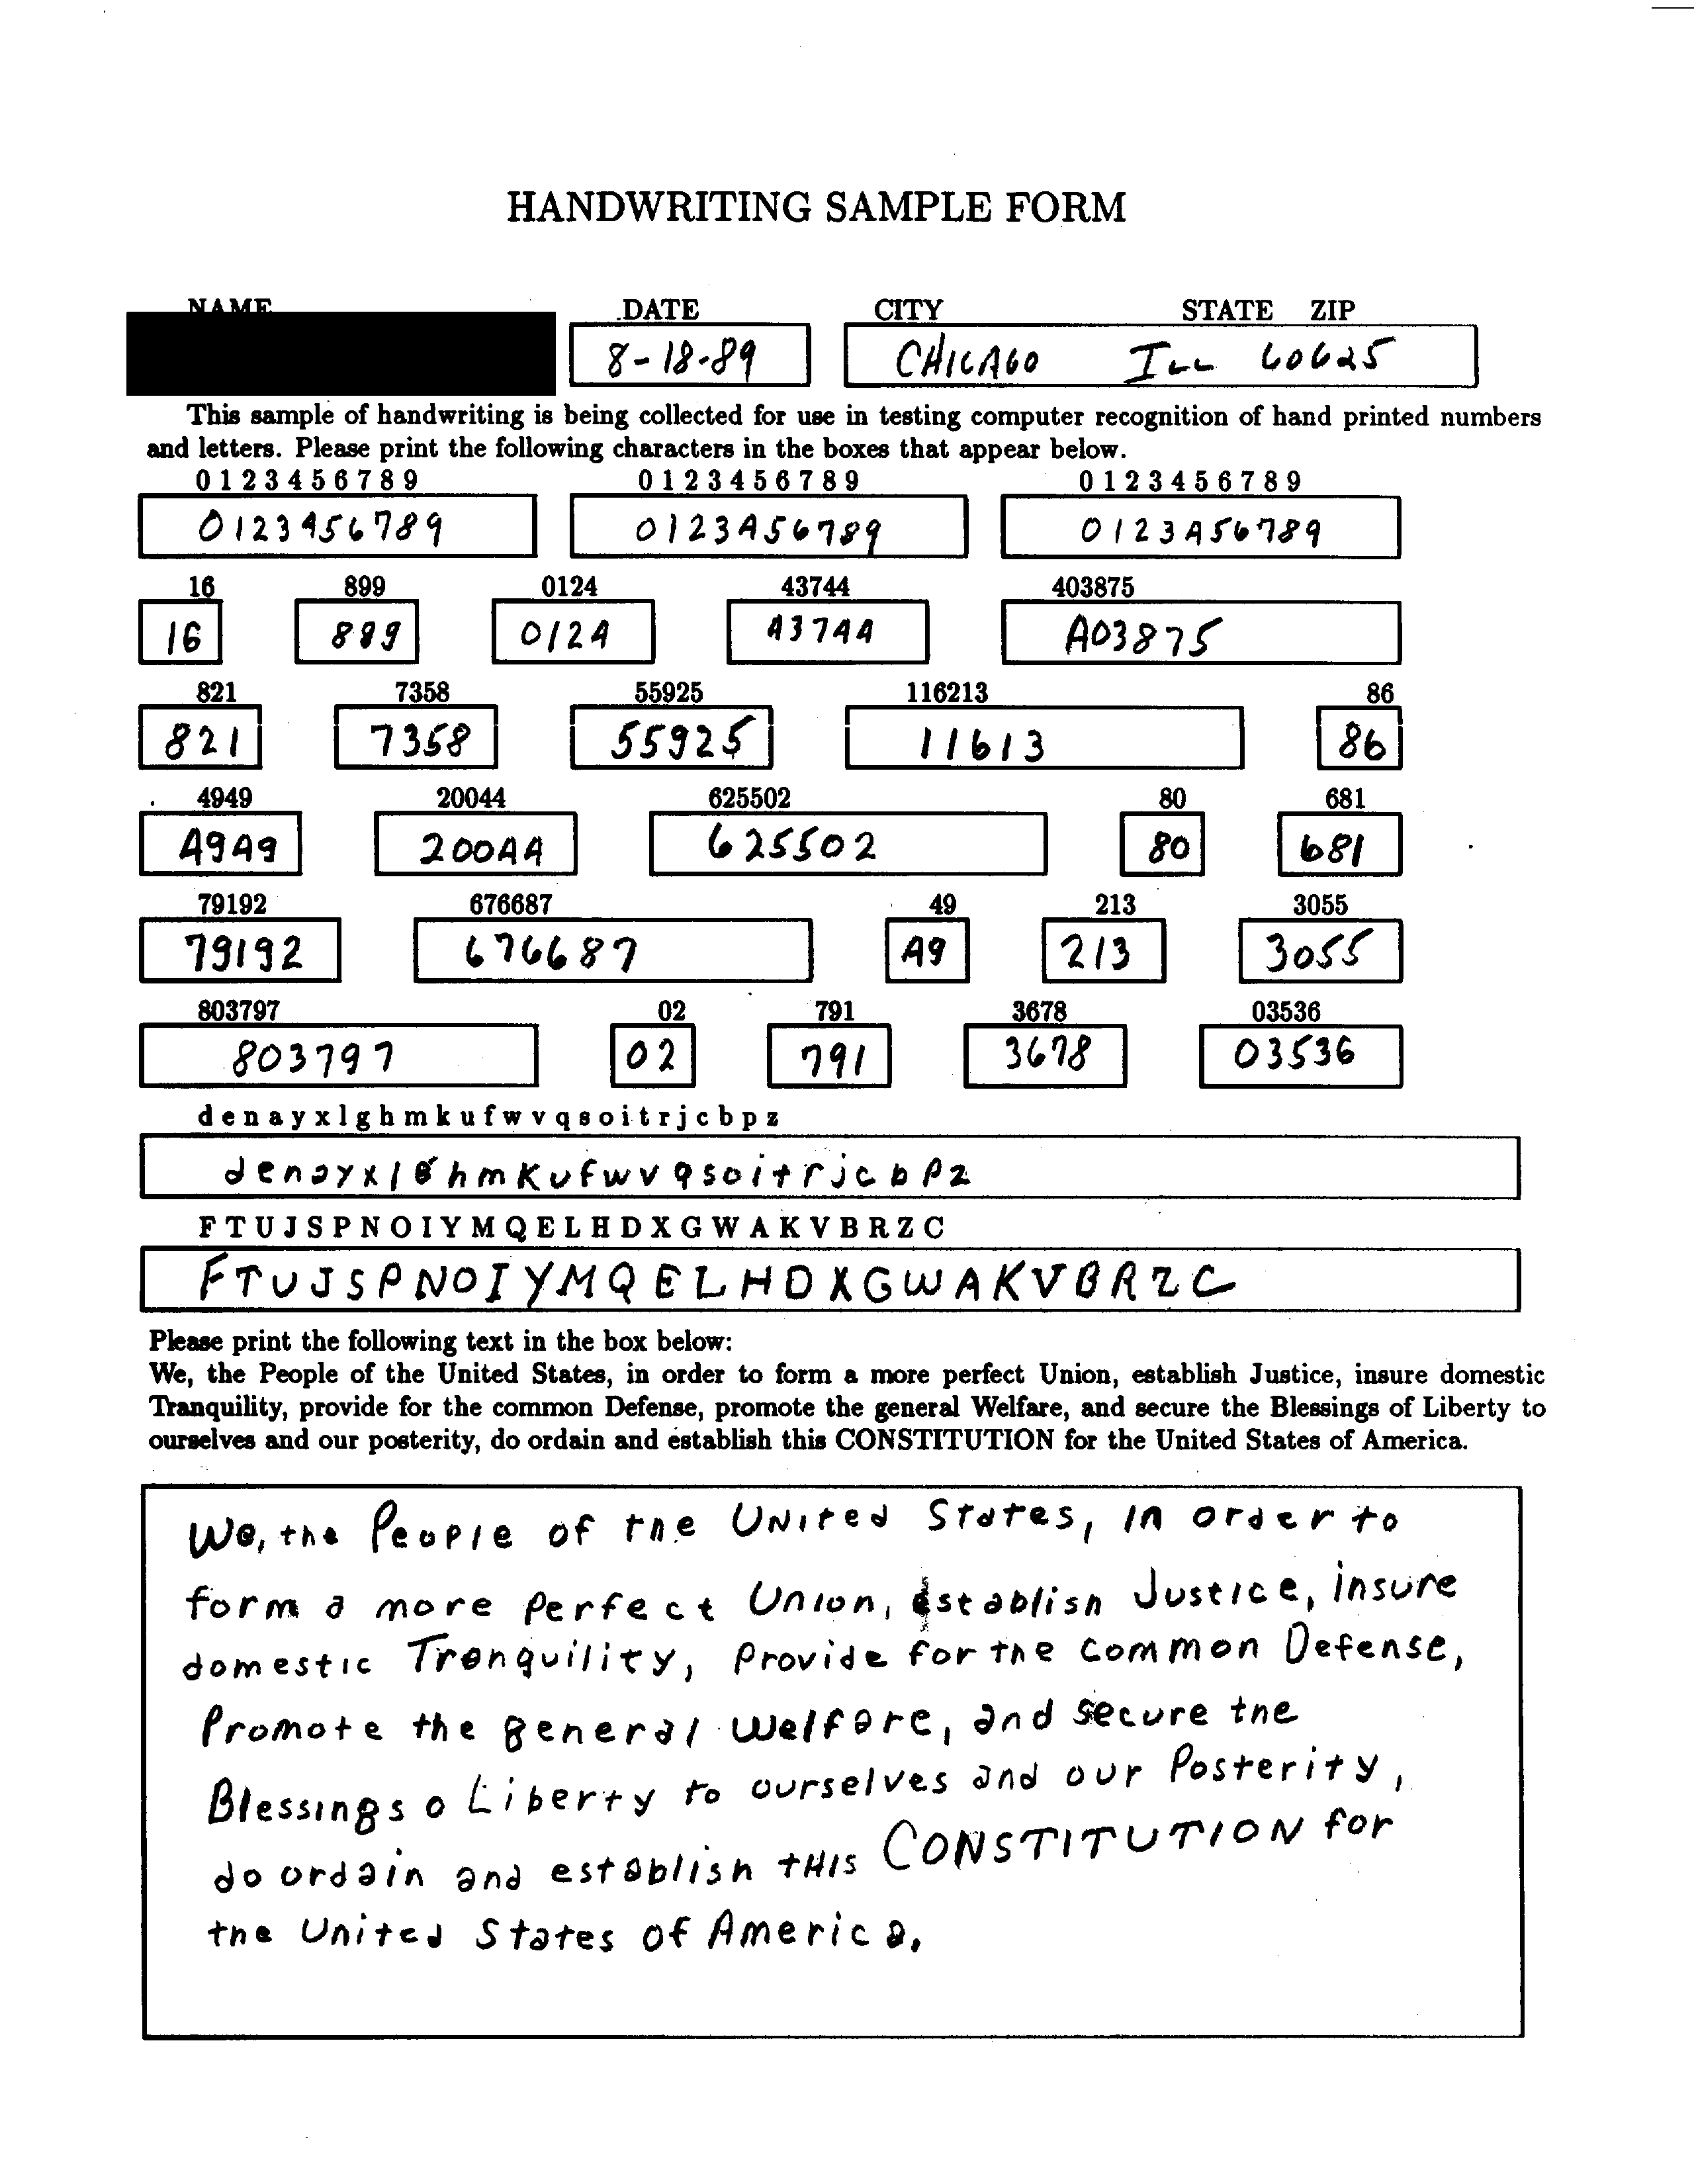 HANDWRITING SAMPLE FORM
NAME DATE CITY STATE ZIP
8-18-89 CHICAGO ILL 60625
This sample of handwriting is being collected for use in testing computer recognition of hand printed numbers
and letters. Please print the following characters in the boxes that appear below.
0 1 2 3 4 5 6 7 8 9 0 1 2 3 4 5 6 7 8 9 0 1 2 3 4 5 6 7 8 9
0123456789 0123456789 0123456789
16 899 0124 43744 403875
16 899 0124 43744 403875
821 7358 55925 116213 86
821 7358 55925 11613 86
4949 20044 625502 80 681
4949 20044 625502 80 681
79192 676687 49 213 3055
79192 676687 49 213 3055
803797 02 791 3678 03536
803797 02 791 3678 03536
d e n a y x l g h m k u f w v q s o i t r j c b p z
denayxlghmkufwvqsoitrjcbpz
F T U J S P N O I Y M Q E L H D X G W A K V B R Z C
FTUJSPNOIYMQELHDXGWAKVBRZC
Please print the following text in the box below:
We, the People of the United States, in order to form a more perfect Union, establish Justice, insure domestic
Tranquility, provide for the common Defense, promote the general Welfare, and secure the Blessings of Liberty to
ourselves and our posterity, do ordain and establish this CONSTITUTION for the United States of America.
We, the People of the United States, in order to
form a more perfect Union, establish Justice, insure
domestic Tranquility, Provide for the common Defense,
Promote the general welfare, and secure the
Blessings o Liberty to ourselves and our Posterity,
do ordain and establish tHis CONSTITUTION for
the United States of America.